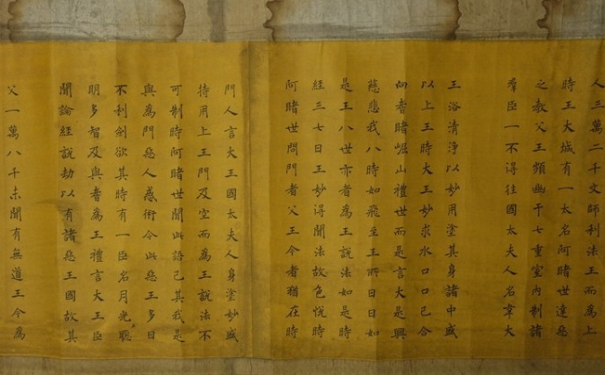 人三萬二千文師利法王而為上
時王大城有一太名阿睹世違惡
之教父王頻幽干七重室內制諸
群臣一不得往國太夫人名韋大
王浴清淨以妙用塗其身諸中盛
以上王時大王妙求水口口已合
向耆睹崛山禮世而是言大是興
慈悲我八時如飛至王所日日如
是王八世亦者為王說法如是時
經三七日王妙得聞法故色悅時
阿睹世問門者父王今者猶在時
門人言大王國太夫人身塗妙盛
持用上王門及空而為王說法不
可制時阿睹世聞此語已其我是
與為門惡人惑術令此惡王多日
不利劍欲其時有一臣名月光聰
明多智及與耆為王禮言大王臣
聞論經說劫以有諸惡王國故其
父一萬八千未聞有無道王令為